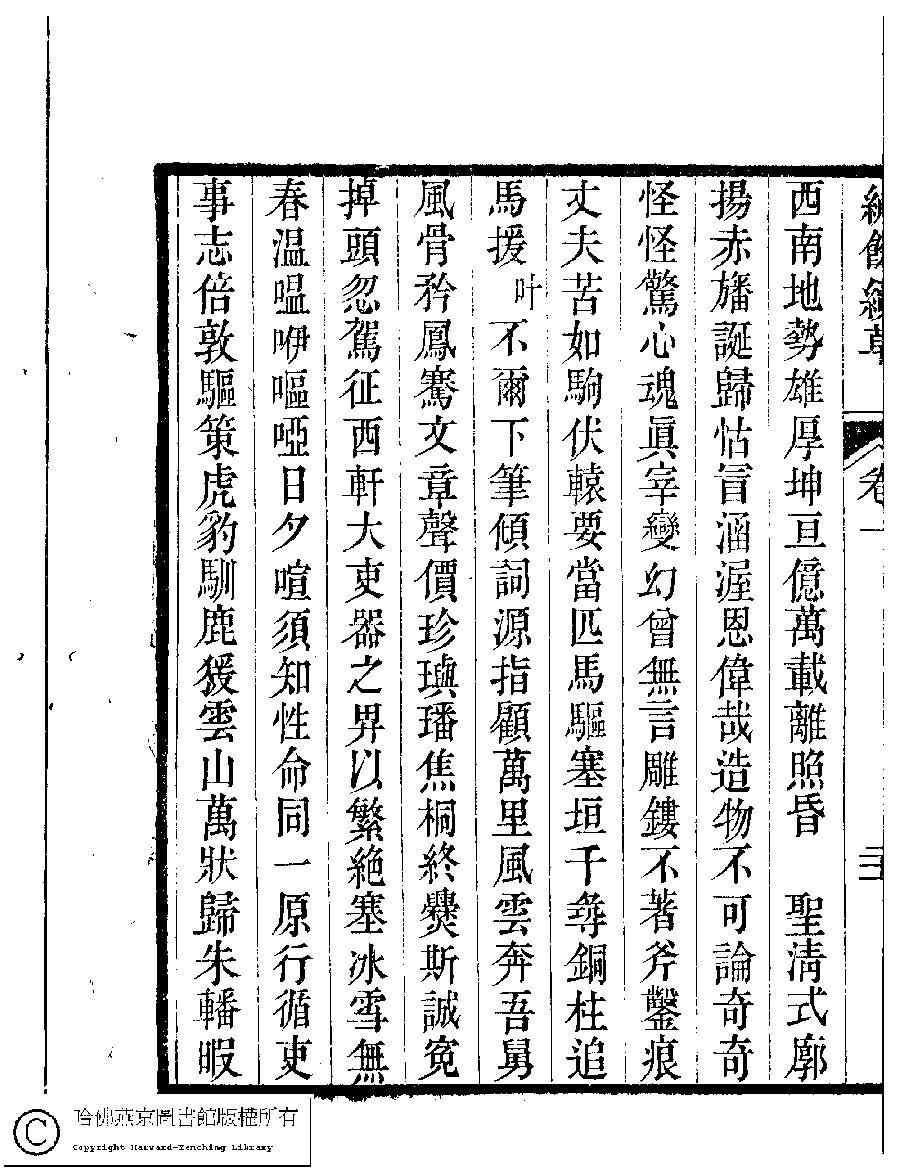 卷一
西南地勢雄厚坤亘億萬載離照昏 聖清式廓
揚赤旛誕歸怙冒涵渥恩偉哉造物不可論奇奇
怪怪驚心魂眞宰變幻曾無言雕鏤不著斧鑿痕
丈夫苦如駒伏轅要當匹馬驅塞垣千尋銅柱追
馬援叶不爾下筆傾詞源指顧萬里風雲奔吾舅
風骨矜鳳騫文章聲價珍璵璠焦桐終爨斯誠寃
掉頭忽駕征西軒大吏器之畀以繁絶塞冰雪無
春温嗢咿嘔啞日夕喧須知性命同一原行循吏
事志倍敦驅策虎豹馴鹿猨雲山萬狀歸朱轓暇
哈佛燕京圖書館版權所有
Copyright Harvard-Yenching Library